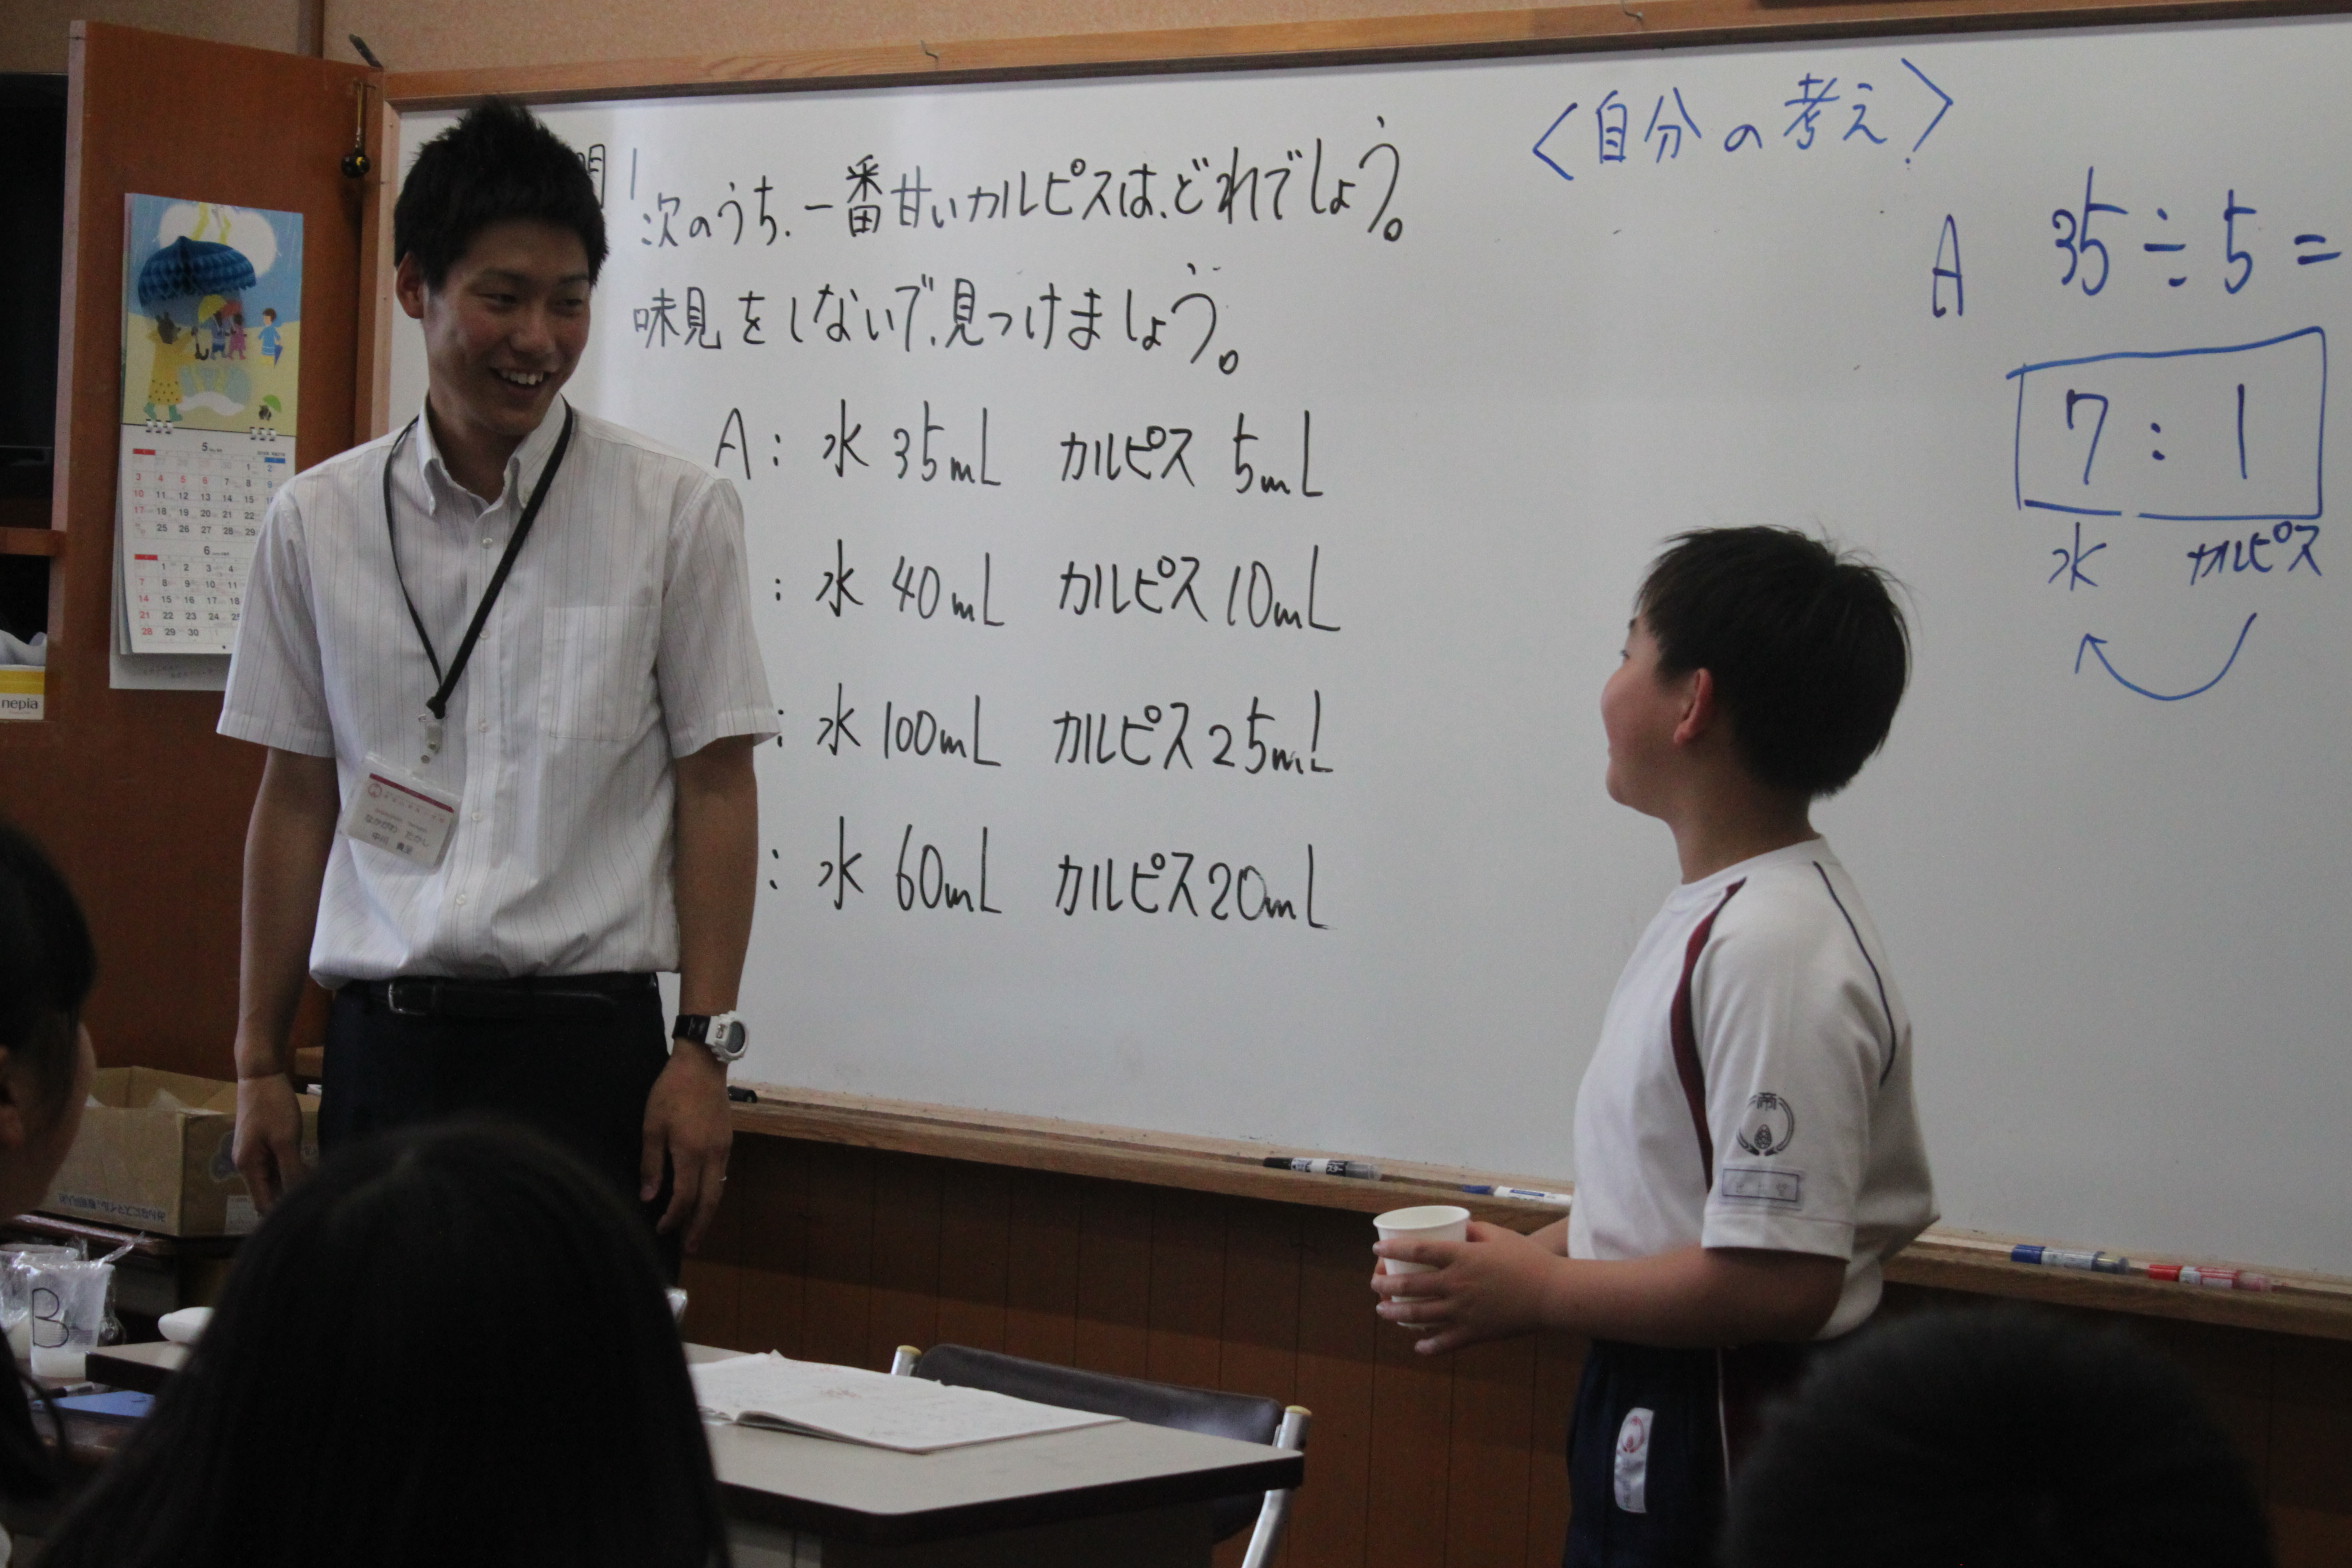 問1
次のうち、一番甘いカルピスは、どれでしょう。
味見をしないで、見つけましょう。
A: 水 35mL カルピス 5mL
: 水 40mL カルピス 10mL
: 水 100mL カルピス 25mL
: 水 60mL カルピス 20mL
<自分の考え>
A 35÷5=
7:1
水 カルピス
5
6
nepia
なかがわ たかし
B